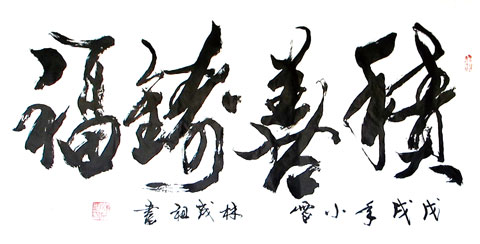 積善鑄福
戊戌年小雪 林成祖書